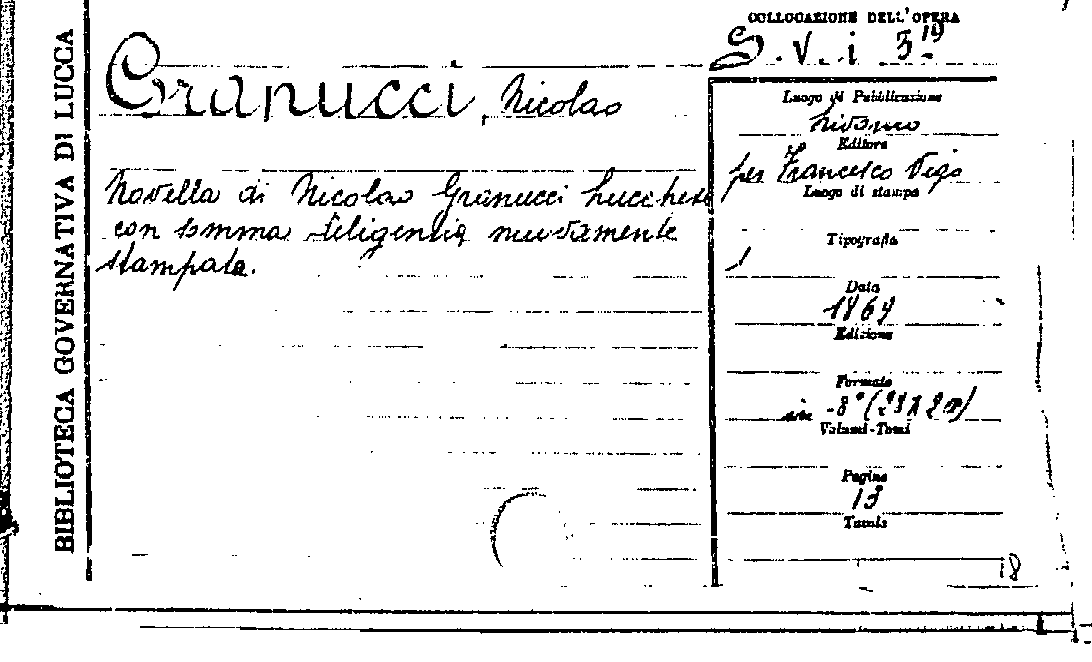 BIBLIOTECA GOVERNATIVA DI LUCCA
COLLOCAZIONE DELL'OPERA
Granucci, Nicolao
Novella di Nicolao Granucci Lucchese
con somma diligenzia nuovamente
stampata.
Luogo di Pubblicazione
Livorno
Editore
per Francesco Vigo
Luogo di stampa
Tipografia
Data
1869
Edizione
Formato
in -8°
Volumi-Tomi
Pagine
13
Tavole
18